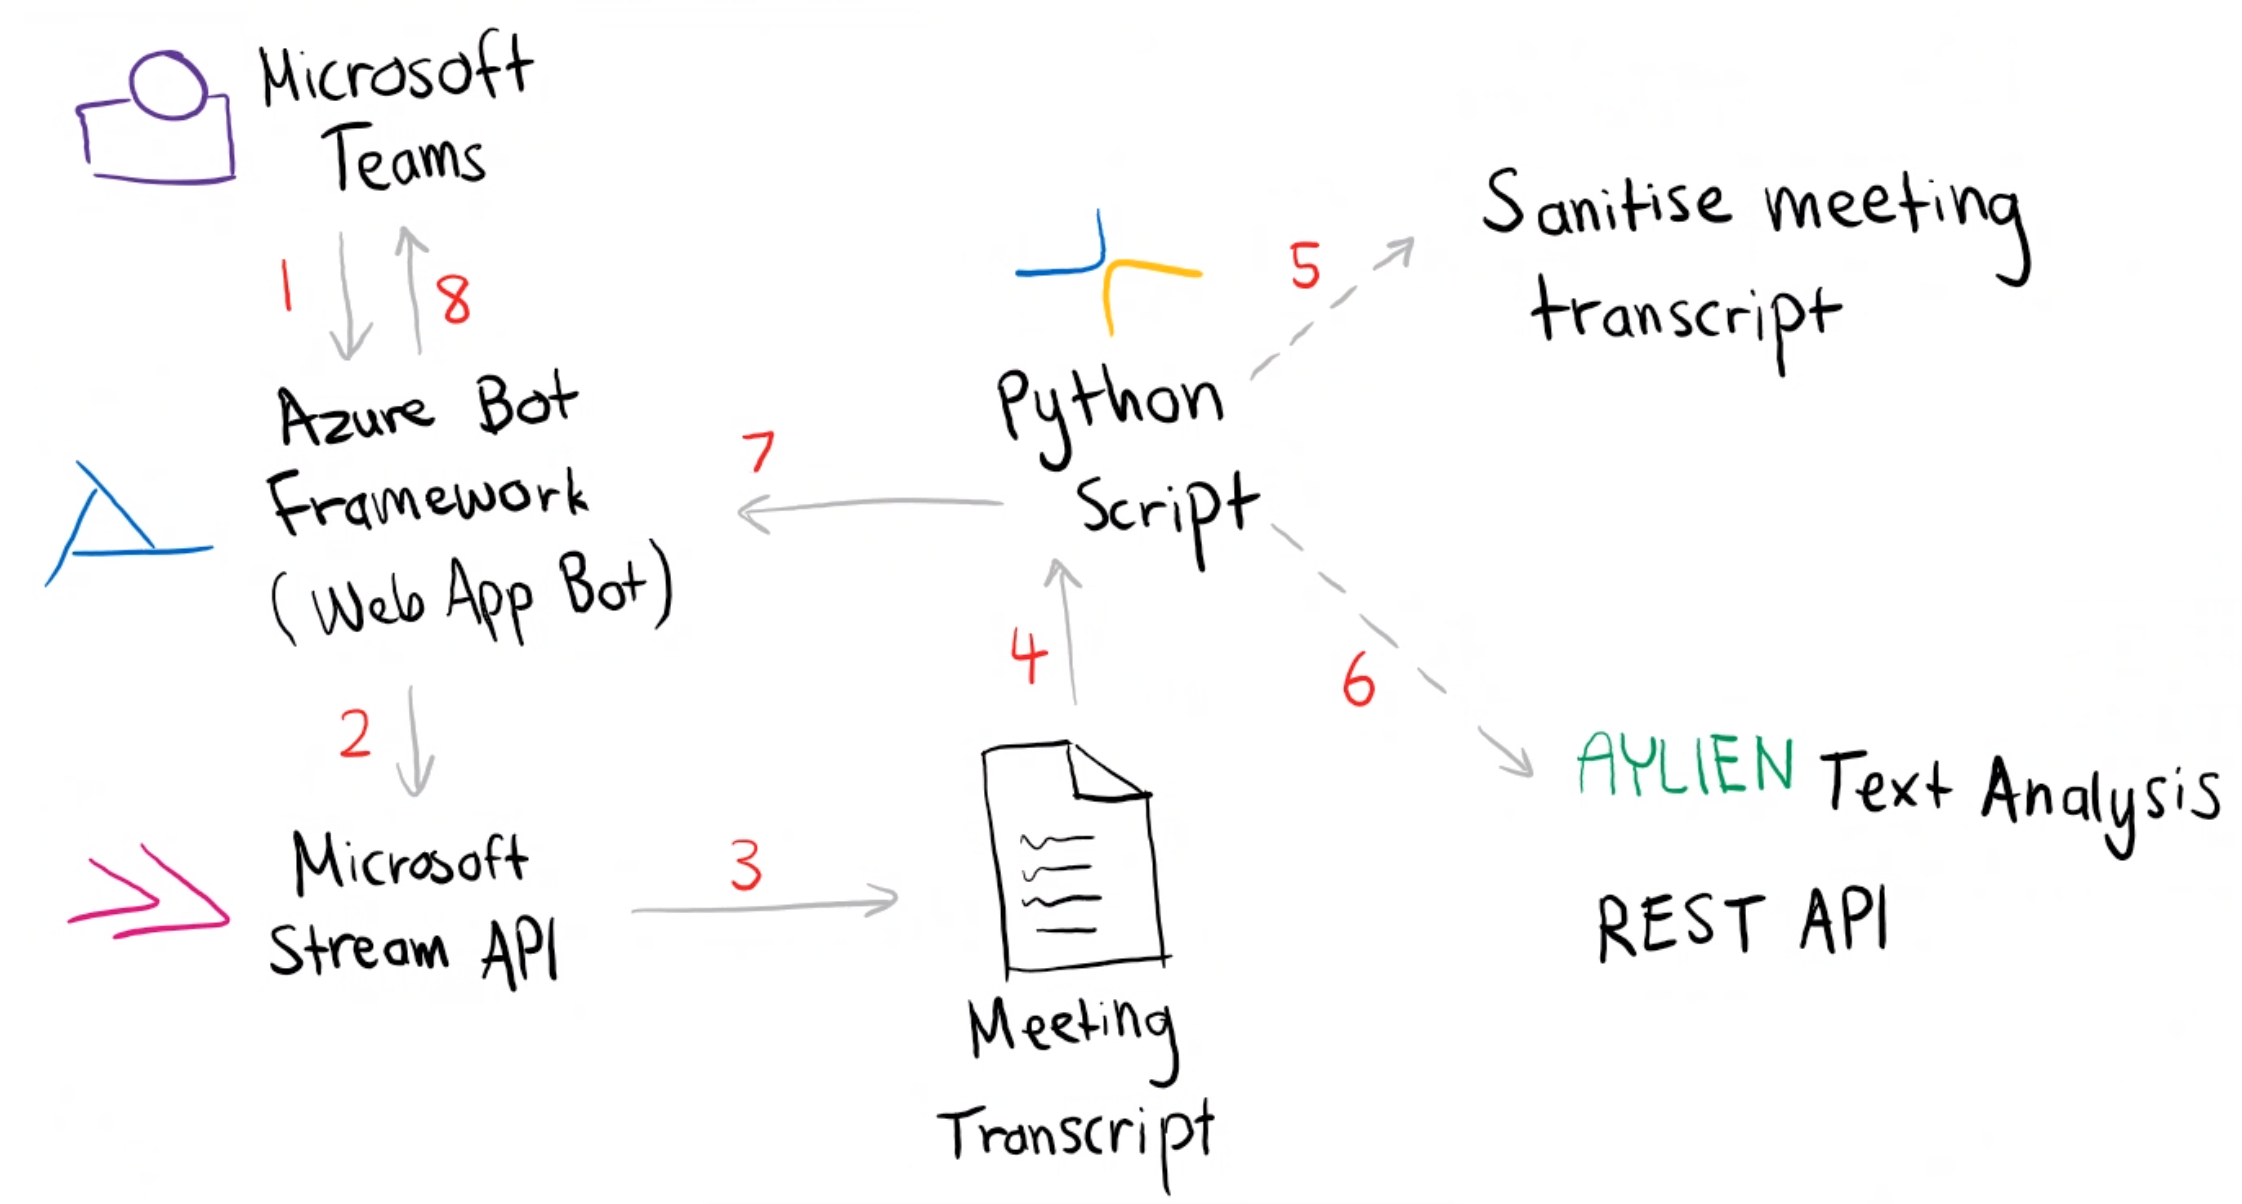 Microsoft
Teams
1
8
Azure Bot
Framework
(Web App Bot)
2
Microsoft
Stream API
3
Meeting
Transcript
4
Python
Script
5
Sanitise meeting
transcript
6
AYLIEN Text Analysis
REST API
7